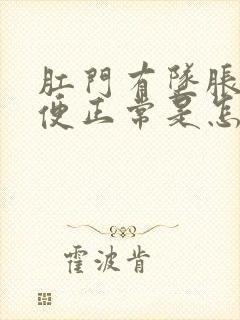 肛門有墜脹
便正常是怎
霍波肯